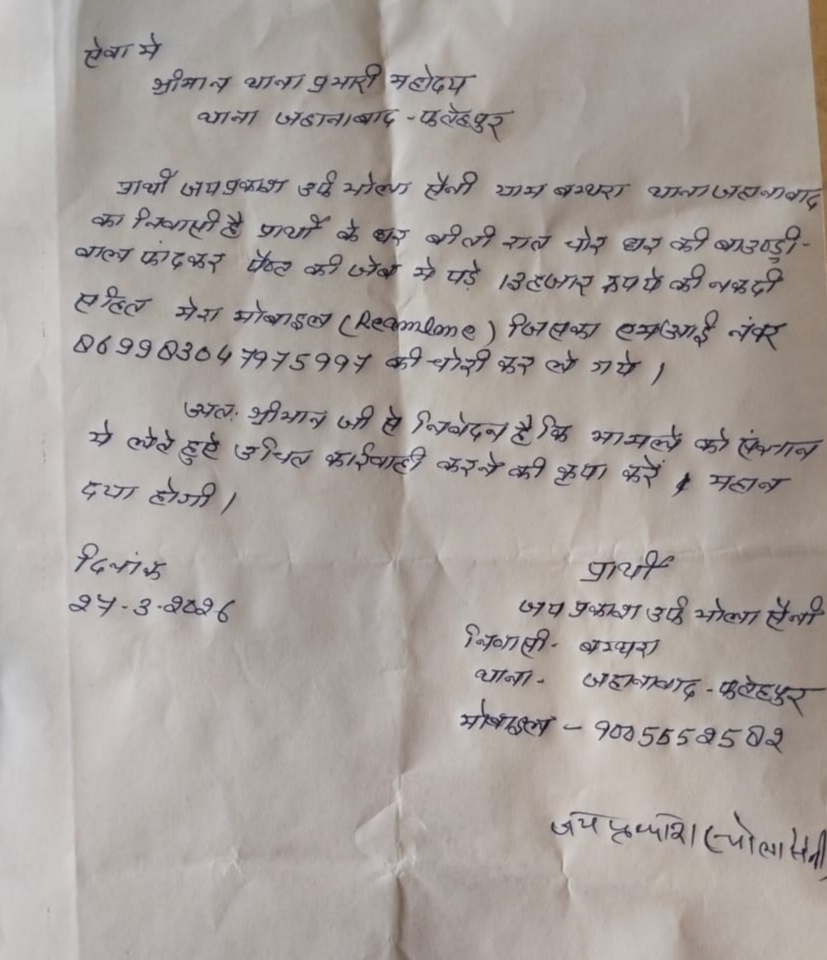 सेवा मे
श्रीमान थाना प्रभारी महोदय
थाना जहानाबाद - फतेहपुर
प्रार्थी जय प्रकाश उर्फ भोला सैनी ग्राम बम्थरा थाना जहानाबाद
का निवासी है प्रार्थी के घर बीती रात चोर घर की बाउण्ड्री-
वाल फांदकर पैन्ट की जेब मे पड़े 13 हजार रुपये की नकदी
सहित मेरा मोबाइल (Reamlome) जिसका एमआई नंबर
869983047975997 की चोरी कर ले गये ।
अतः श्रीमान जी से निवेदन है कि मामले को संज्ञान
मे लेते हुऐ उचित कार्रवाही करने की कृपा करें । महान
दया होगी ।
दिनांक
27-3-2026
प्रार्थी
जय प्रकाश उर्फ भोला सैनी
निवासी - बम्थरा
थाना - जहानाबाद - फतेहपुर
मोबाइल - 9005552582
जय प्रकाश (भोला सैनी)